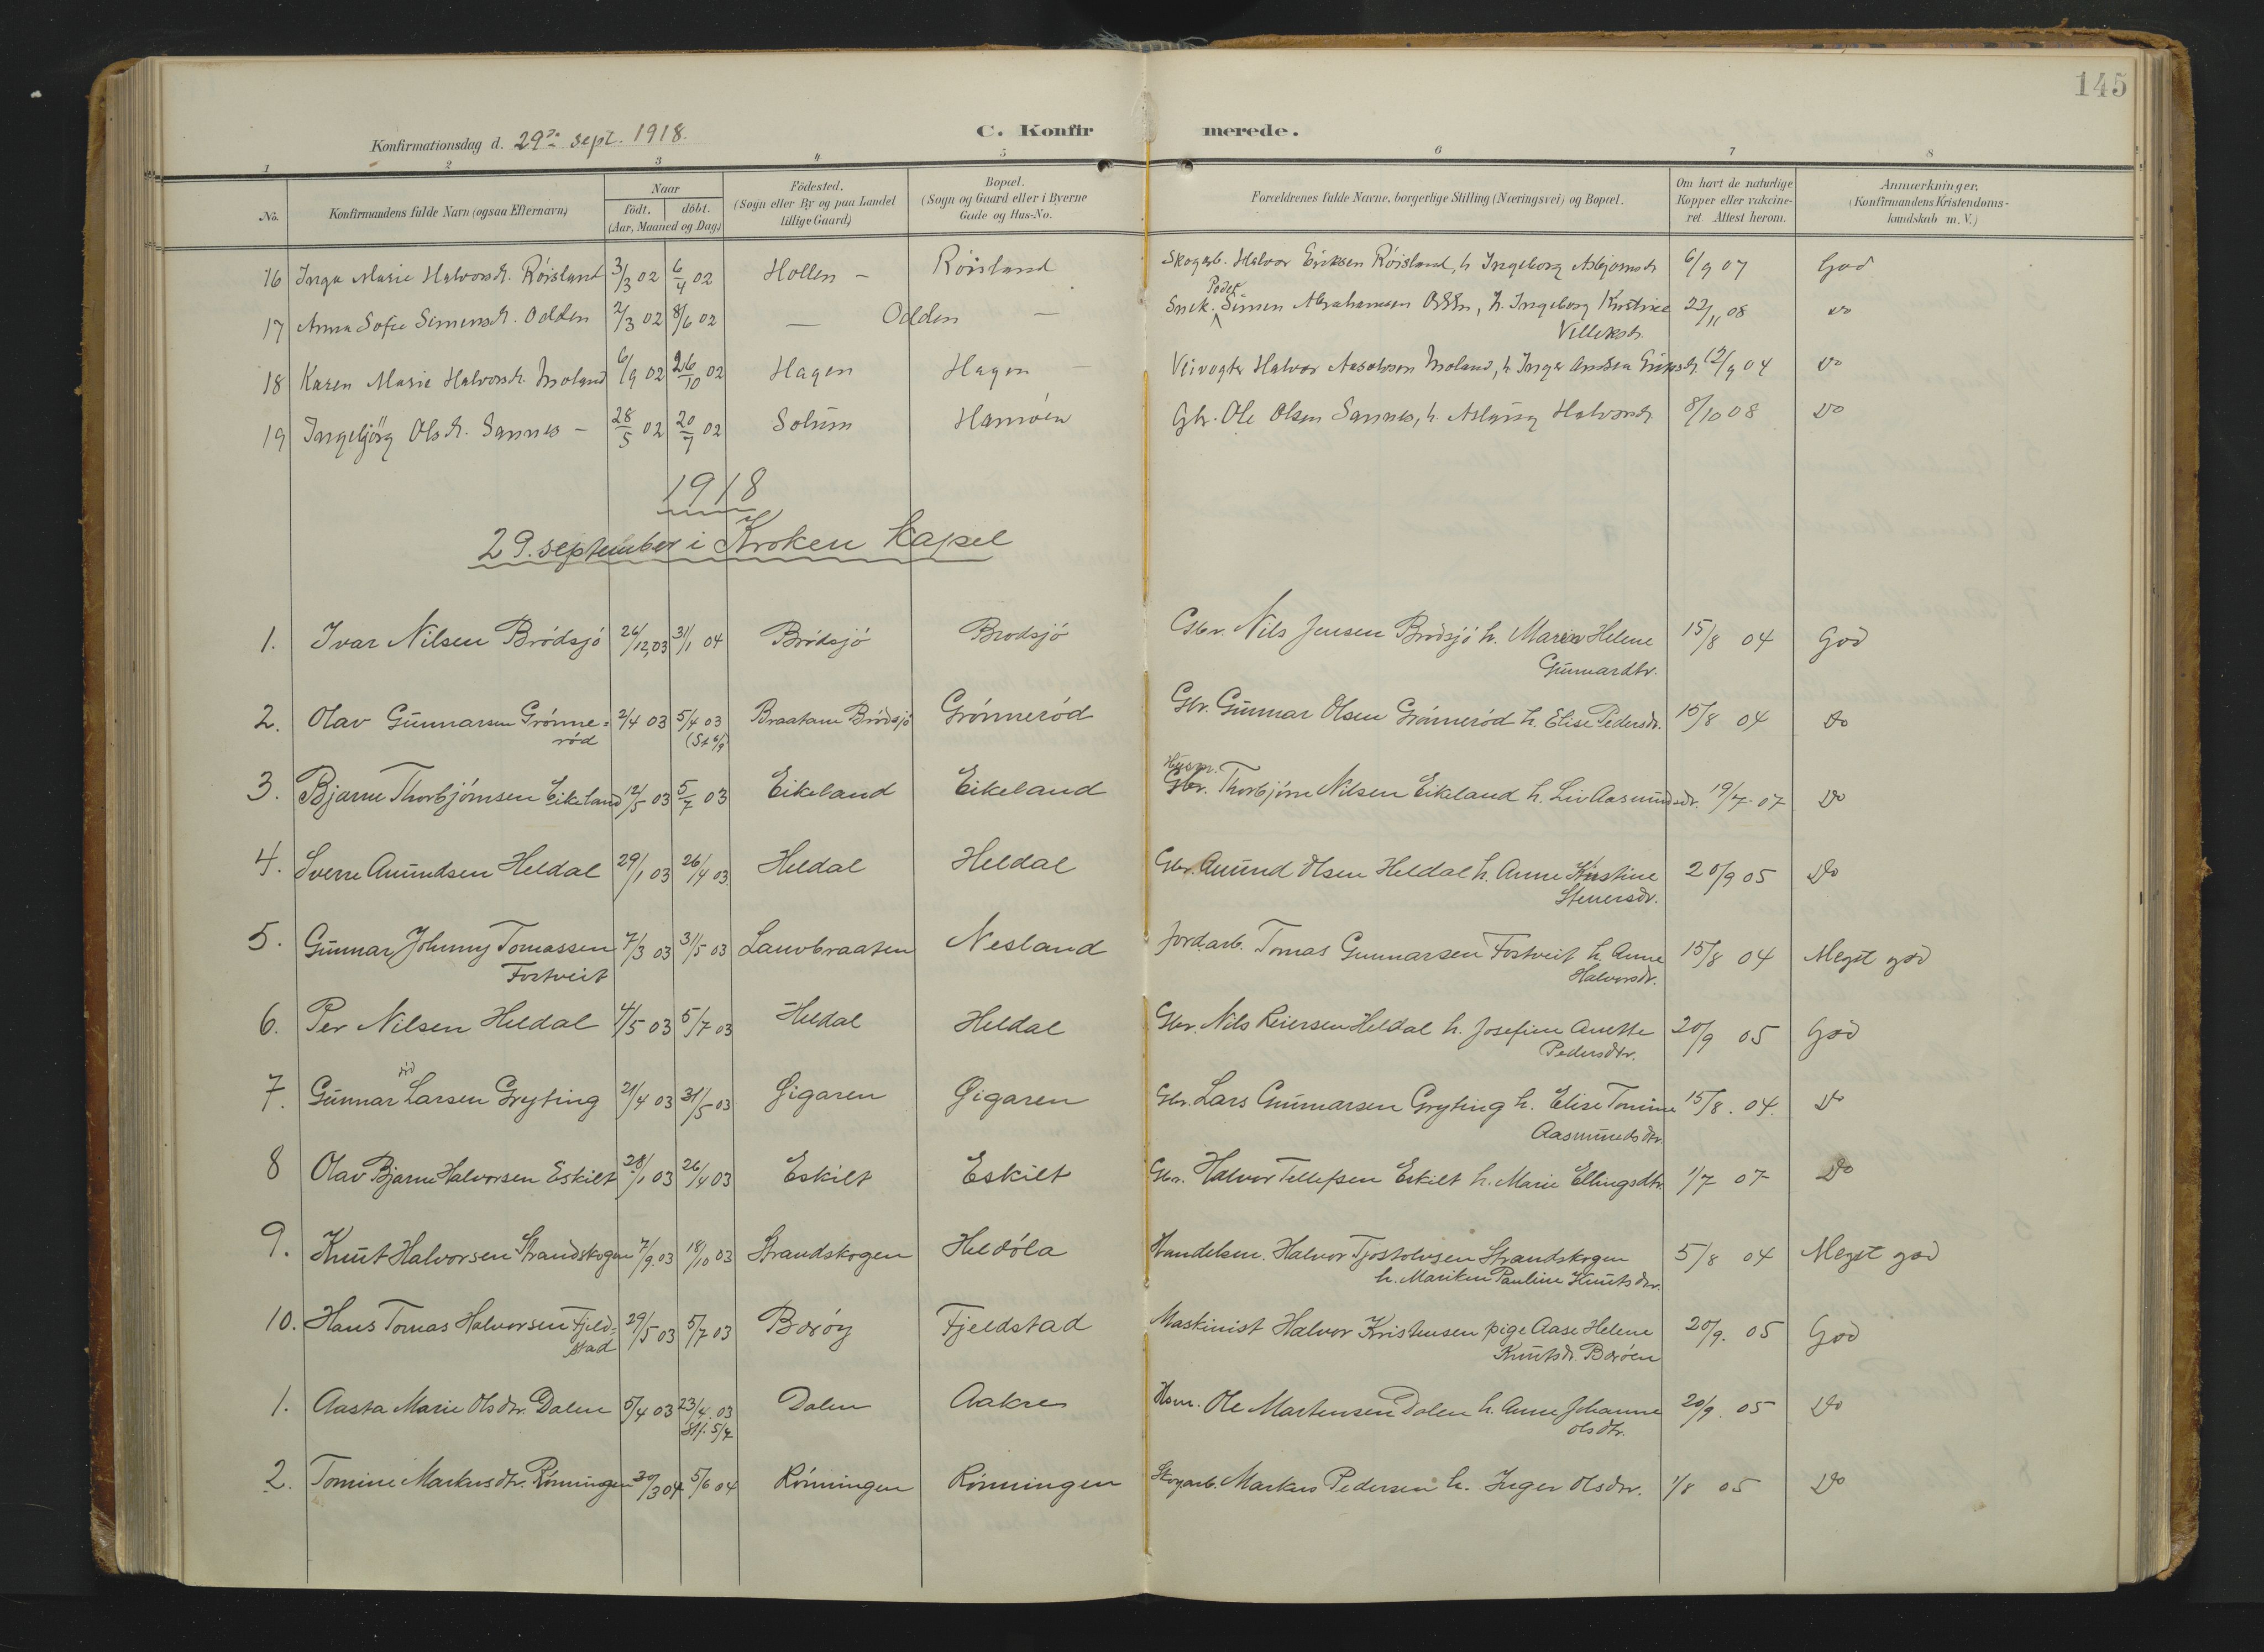 145
Konfirmationsdag d. 29de sept. 1918.
C. Konfirmerede.
1 2 3 4 5 6 7 8
No. Konfirmandens fulde Navn (ogsaa Efternavn) Naar födt, döbt. (Aar, Maaned og Dag) Födested. (Sogn eller By og paa Landet tillige Gaard) Bopæl. (Sogn og Gaard eller i Byerne Gade og Hus-No. Forældrenes fulde Navne, borgerlige Stilling (Næringsvei) og Bopæl. Om havt de naturlige Kopper eller vakcineret. Attest herom. Anmærkninger, (Konfirmandens Kristendomskundskab m. V.)
16 Inga Marie Halvorsdr. Röisland 3/3 02 6/4 02 Hollen – Röisland Skogarb. Halvor Eriksen Röisland, h Ingeborg Asbjørnsdr 6/9 07 God
17 Anna Sofie Simensdr. Odden 2/3 02 8/6 02 — Odden — Snek. Peder Simen Abrahamsen Odden, h. Ingeborg Kristine 23/11 08 do
18 Karen Marie Halvorsdr. Moland 6/9 02 26/10 02 Hagen Hagen – Veivogter Halvor Moland, h Inger 12/9 04 do
19 Ingebjörg Olsdr. Sannes – 28/5 02 20/7 02 Solum Hamöen Gbr. Ole Olsen Sannes, h. Aslaug Halvorsdr 8/10 08 do
1918
29. september i Kroken kapel
1. Ivar Nilsen Brödsjö 26/12,03 31/1 04 Brödsjö Brodsjö Gbr. Nils Jensen Brödsjö h. Maren Helene 15/8 04 God
Gunnardtr.
2. Olav Gunnarsen Grönne= 2/4 03 5/4 03 Braatane Brödsjö Grönneröd Gbr. Gunnar Olsen Grönneröd h. Elise Pedersdr. 15/8 04 do
röd
Husm.
3. Bjarne Thorbjörnsen Eikeland 12/5 03 5/7 03 Eikeland Eikeland Gbr. Thorbjörn Nilsen Eikeland h. Liv Aasmundsdr. 19/7 07 Do
4. Sverre Amundsen Heldal 29/1 03 26/4 03. Heldal Heldal Gbr. Amund Olsen Heldal h. Anne Kirstine 20/9 05 Do
5. Gunnar Johnny Tomassen 7/3 03 31/5 03 Lauvbraaten Nesland Jordarb. Tomas Gunnarsen Fostveit h. Anne 15/8 04 Meget god
Fostveit Halvorsdr.
6. Per Nilsen Heldal 4/5 03 5/7 03 Heldal Heldal Gbr. Nils Reiersen Heldal h. Josefine Anette 20/9 05 God
Pedersdtr.
7. Gunnar Larsen Gryting 21/4 03 31/5 03 Gigaren Gigaren Gbr. Lars Gunnarsen Gryting h. Elise Tomine 15/8. 04. Do
Aasmundsdtr.
8 Olav Bjarne Halvorsen Eskilt 28/1 03 26/4 03 Eskilt Eskilt Gbr. Halvor Tellefsen Eskilt h. Marie Ellingsdtr 1/7 07 Do
9. Knut Halvorsen Strandskogen 7/9.03 18/10 03 Strandskogen Heldöla Handelsm. Halvor Tjostolvsen Strandskogen 5/8 04 Meget god
h. Mariken Pauline Knutsdtr.
10. Hans Tomas Halvorsen Fjeld= 29/5 03 5/7 03 Boröy Fjeldstad Maskinist Halvor Kristensen pige Aase Helene 20/9. 05 God
stad Knutsdr. Boröen
1. Aasta Marie Olsdtr. Dalen 5/4 03 23/4. 03 Dalen Aakre Husm. Ole Martensen Dalen h. Anne Johanne 20/9. 05 Do
Stf. 5/7 Olsdtr.
2. Tomine Markusdtr. Rönningen 30/3 04 5/6 04 Rönningen Rönningen Skogarb. Markus Pedersen h. Inger Olsdtr. 1/8 05 Do